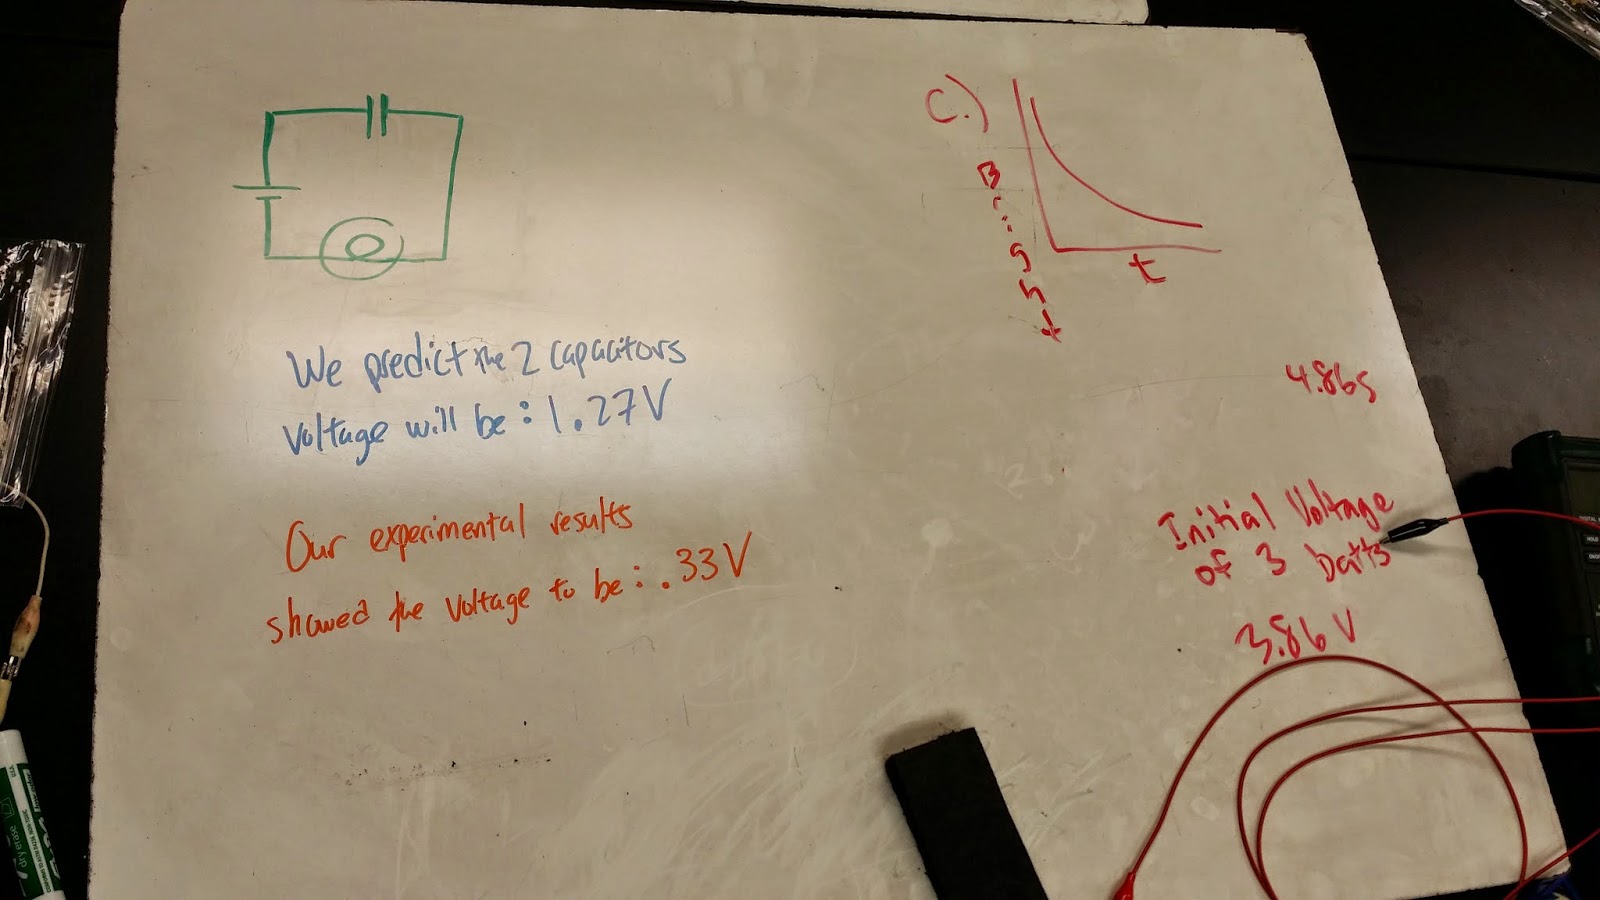 We predict the 2 capacitors
voltage will be: 1.27V
Our experimental results
showed the voltage to be: .33V
C.)
Bright
t
4.86s
Initial Voltage
of 3 batts
3.86 V